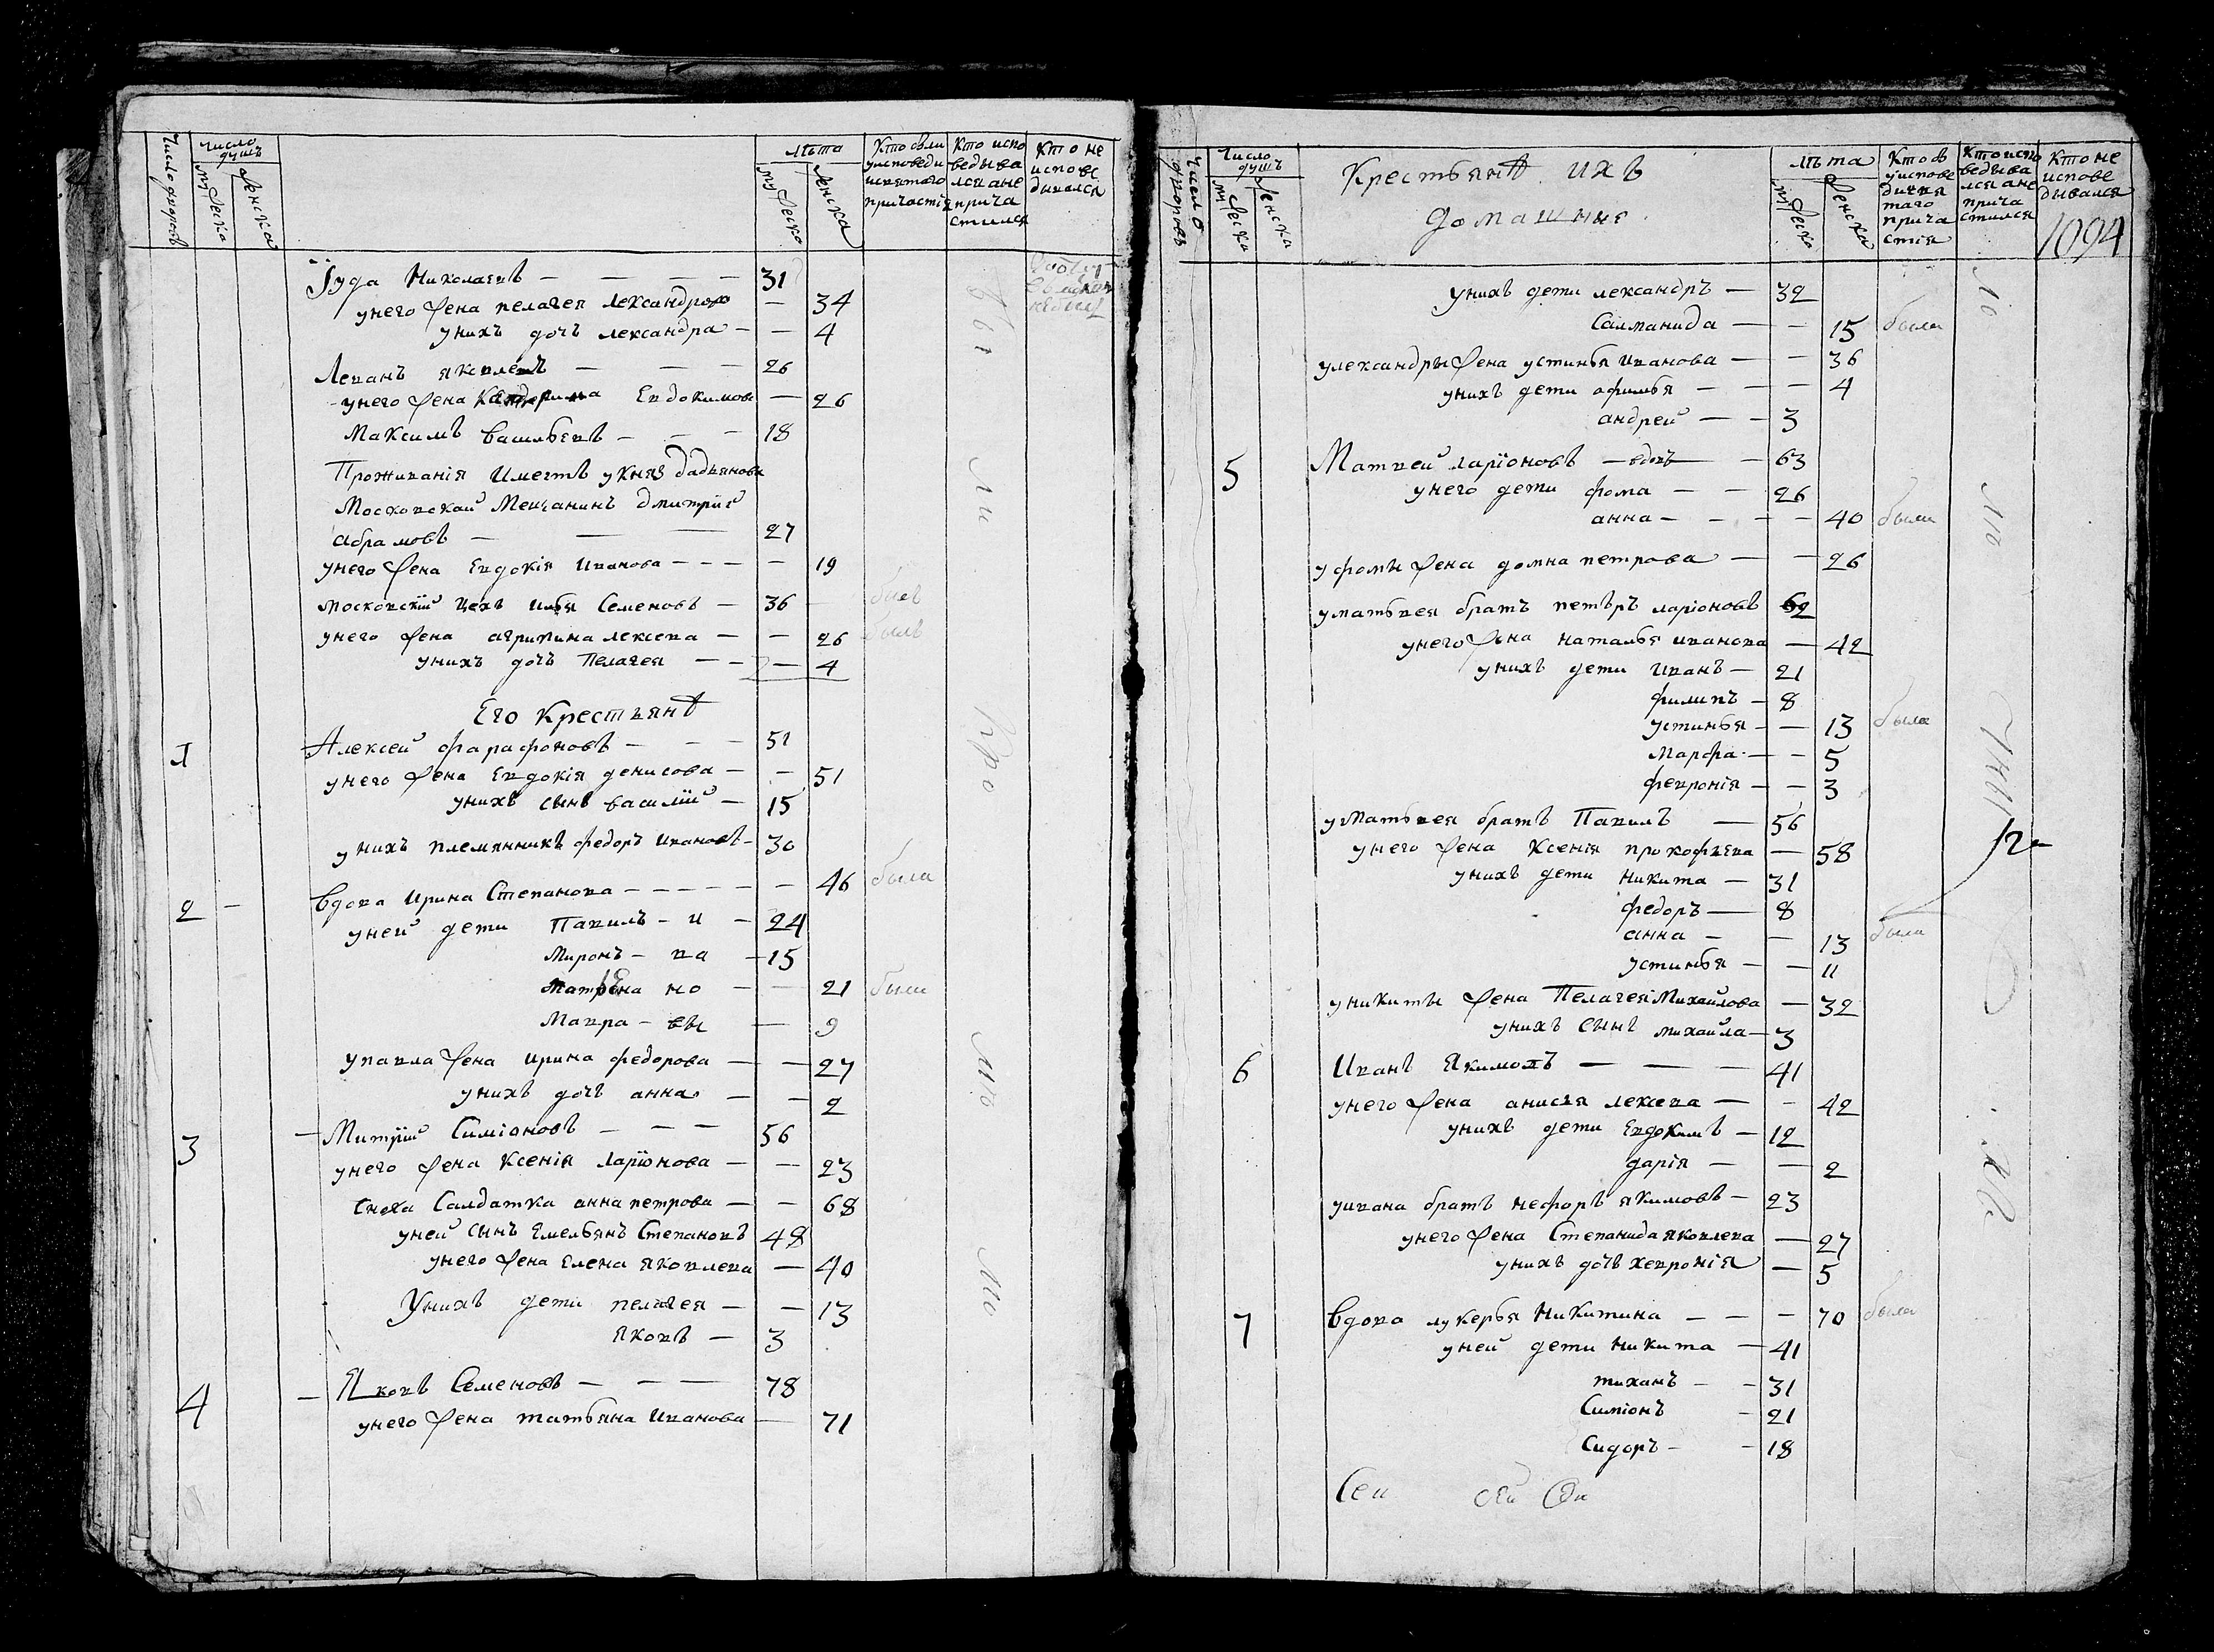 Число дворовъ
Число душъ
мужеска
женска
Лѣта
мужеска
женска
Кто были у исповеди и святаго причастія
Кто испо ведыва лся а не прича стился
Кто не испове дывался
Іуда Николаевъ — — — — 31
у него жена пелагея лександрова — 34
у нихъ дочь лександра — — 4
Леванъ яковлевъ — — — 26
у него жена Катерина Евдокимова — 26
Максимъ васильевъ — — — 18
Проживанія Имеетъ у Князя дадианова
Московской Мещанинъ дмитрій
абрамовъ — — — 27
у него жена Евдокія Иванова — — — — 19
московскій цехъ илья Семеновъ — 36 былъ
у него жена агрипина лексева — — 26 была
у нихъ дочь Пелагея — — — 4
Его Крестьянѣ
1 Алексей фарафоновъ — — — 51
у него жена Евдокія денисова — — 51
у нихъ сынъ василій — 15
у нихъ племянникъ федоръ ивановъ — 30
2 — вдова Ирина Степанова — — — — — — 46 была
у ней дети Павилъ — и — 24
Миронъ — ва — 15
Матрена но — — 21 были
Мавра — вы — 9
у павла жена ирина федорова — — 27
у нихъ дочь анна — — 2
3 — Митрій Симіоновъ — — — 56
у него жена Ксенія Ларіонова — — 23
Снеха Салдатка анна петрова — — 68
у ней сынъ Емельянъ Степановъ 48
у него жена Елена яковлева — 40
У нихъ дети пелагея — — 13
яковъ — 3
4 — Яковъ Семеновъ — — — 78
у него жена татьяна Иванова — 71
бы
ли
про
мо
мо
Число дворовъ
Число душъ
мужеска
женска
Крестьянѣ ихъ
домашние
Лѣта
мужеска
женска
Кто в у испове ди свя таго прича стія
Кто испо ведыва лся а не прича стился
Кто не испове дывался
1094
у нихъ дети лександръ — 32
Салманида — — 15 были
у лександры жена устинья иванова — — 36
у нихъ дети афимья — — — 4
андрей — — 3
5 Матвей ларіоновъ — вдовъ — 63
у него дети фома — — 26
анна — — — — 40 были
у фомы жена домна петрова — — 26
у матвея братъ петъръ ларіоновъ 62
у него жена наталья иванова — 42
у нихъ дети иванъ — 21
филипъ — 8
устинья — — 13 была
Марфа — — 5
февронія — — 3
у Матвея братъ Павилъ — 56
у него жена Ксенія прокофьева — 58
у нихъ дети никита — 31
федоръ — 8
анна — — 13 была
устинья — — 11
у никиты жена Пелагея Михайлова — 32
у нихъ сынъ михайла — 3
6 Иванъ Якимовъ — — — 41
у него жена анисья лексева — — 42
у нихъ дети Евдокимъ — 12
дарія — — 2
у ивана братъ нефоръ якимовъ — 23
у него жена Степанида яковлева — 27
у нихъ дочь хевронія — 5
7 вдова лукерья Никитина — — — 70 была
у ней дети никита — 41
тиханъ — — 31
Симіонъ — 21
Сидоръ — — 18
Сеи